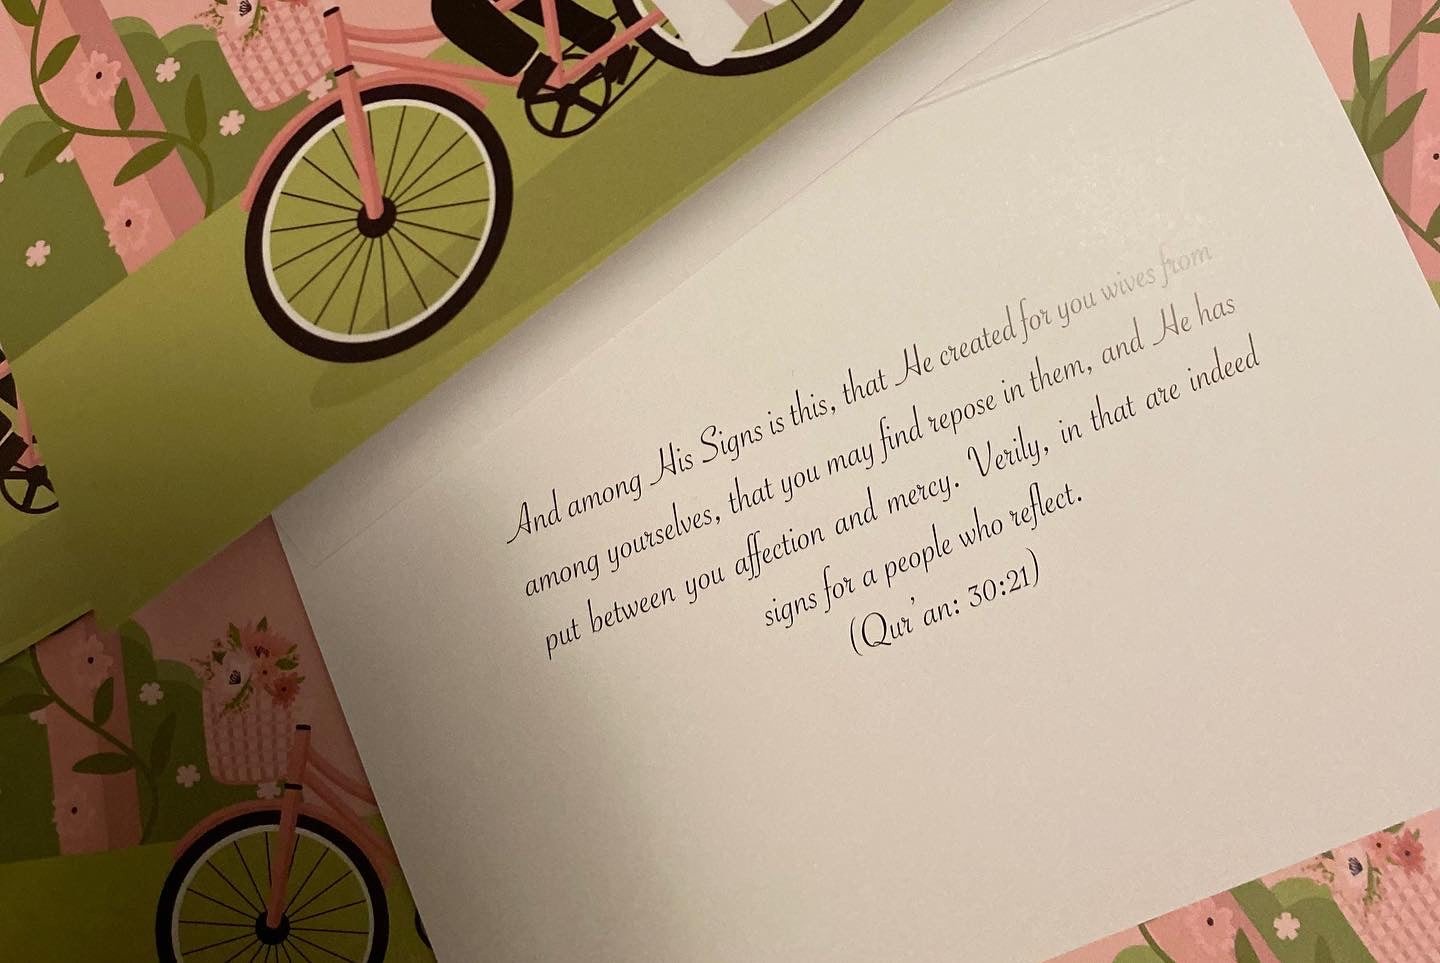 And among His Signs is this, that He created for you wives from
among yourselves, that you may find repose in them, and He has
put between you affection and mercy. Verily, in that are indeed
signs for a people who reflect.
(Qur'an: 30:21)